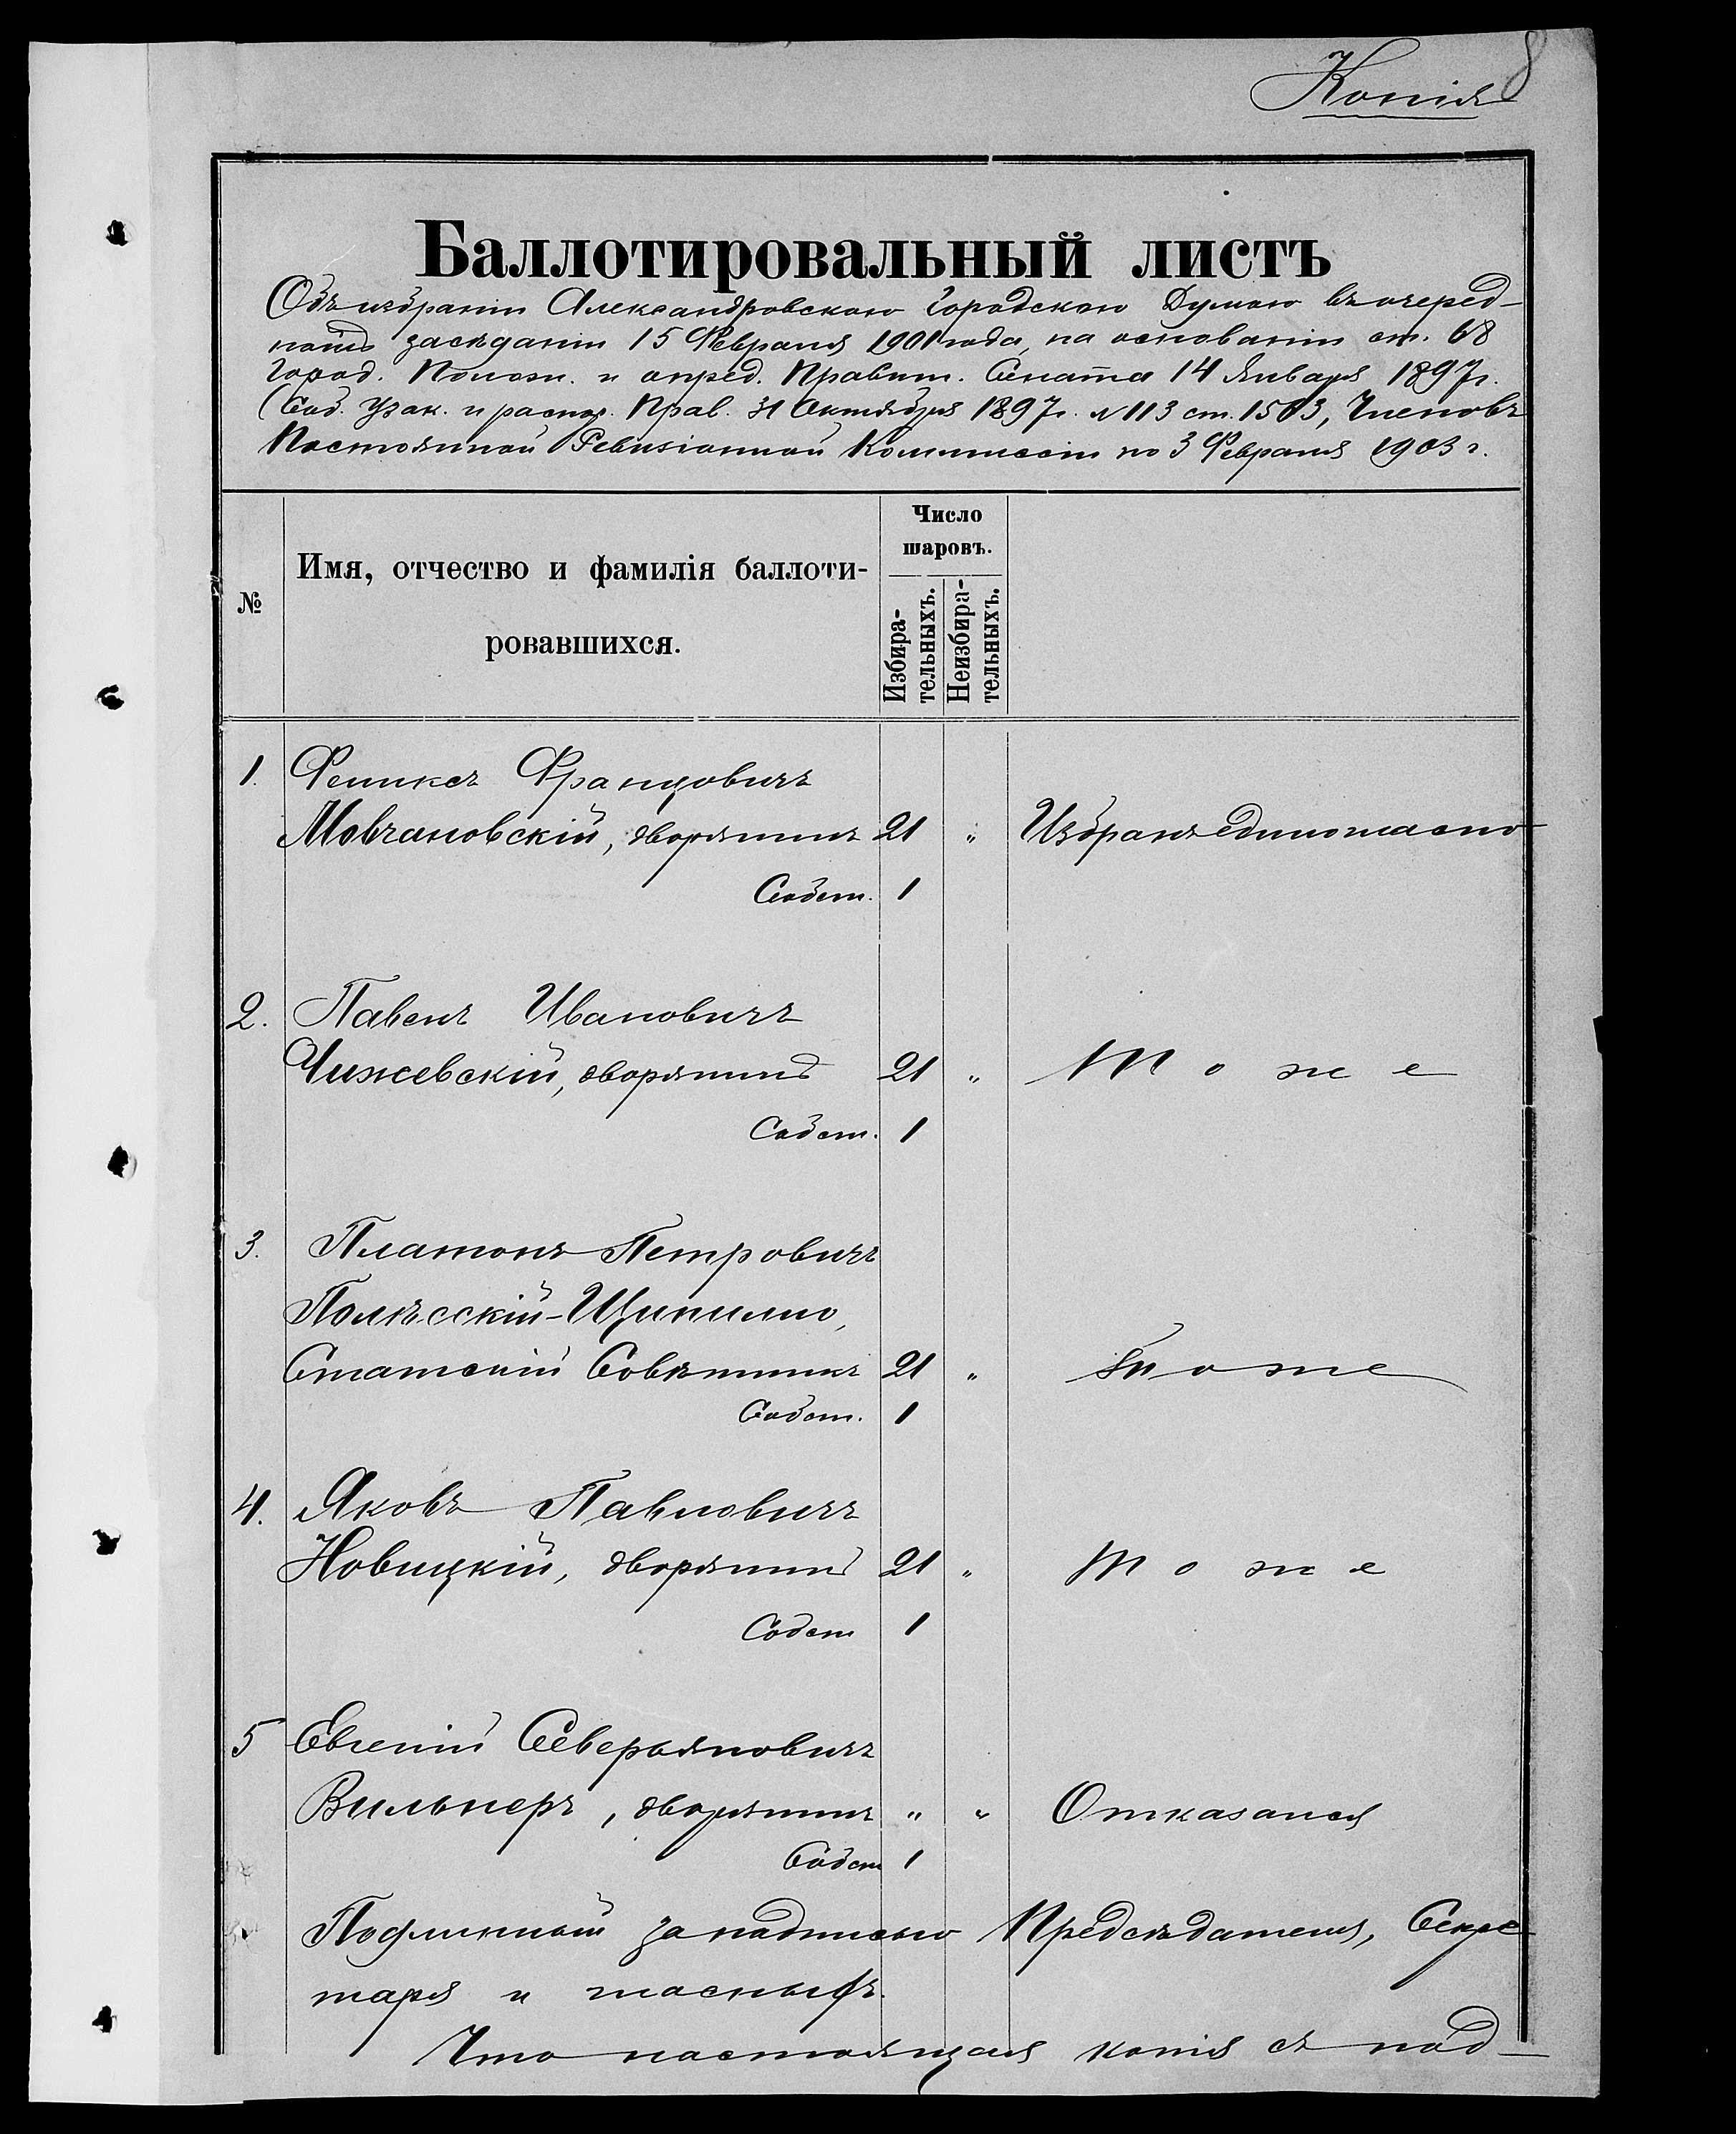 8
Копія
Баллотировальный листъ
Объ избраніи Александровскою Городскою Думою въ очеред-
номъ засѣданіи 15 Февраля 1901 года, на основаніи ст. 68
Город. Полож. и опред. Правит. Сената 14 Января 1897 г.
(Соб. Узак. и распор. Прав. 31 Октября 1897 г. № 113 ст. 1503, Членовъ
Постоянной Ревизіонной Коммиссіи по 3 Февраля 1903 г.
№ Имя, отчество и фамилія баллоти-
ровавшихся.
Число
шаровъ.
Избира-
тельныхъ.
Неизбира-
тельныхъ.
1. Феликсъ Францовичъ
Мовчановскій, дворянинъ 21 „ Избранъ единогласно
Собст. 1
2. Павелъ Ивановичъ
Чижевскій, дворянинъ 21 „ Тоже
Собст. 1
3. Платонъ Петровичъ
Полѣсскій-Щипилло,
Статскій Совѣтникъ 21 „ Тоже
Собст. 1
4. Яковъ Павловичъ
Новицкій, дворянинъ 21 „ Тоже
Собст 1
5 Евгеній Северьяновичъ
Вильнеръ, дворянинъ „ „ Отказался
Собст 1
Подлинный за надписью Предсѣдателя, Секре-
таря и гласныхъ.
Что настоящая копія съ под-